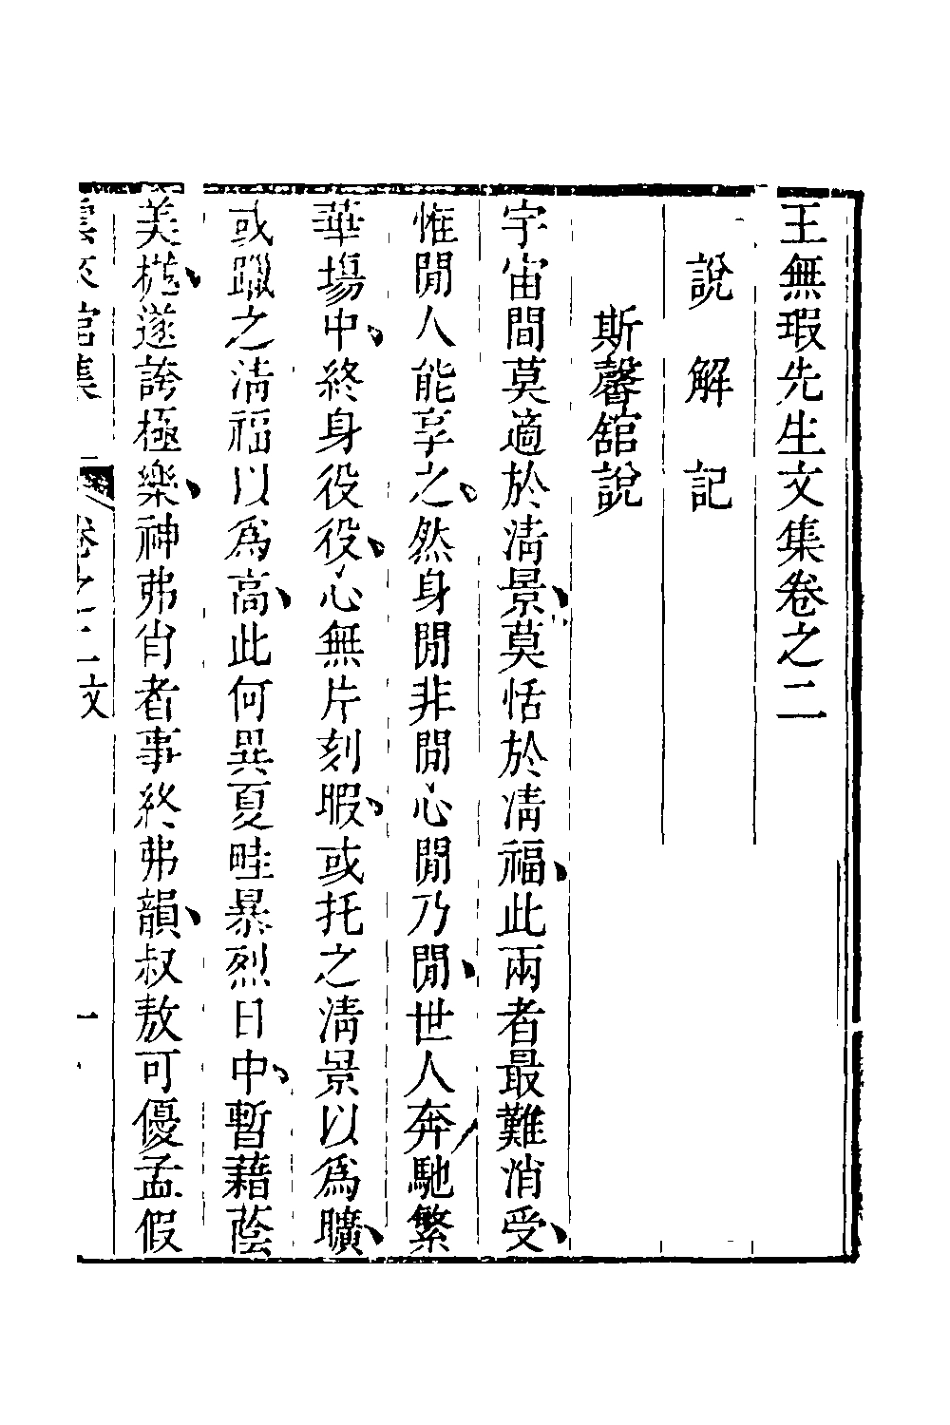 王無瑕先生文集卷之二
說 解 記
斯馨舘說
宇宙間莫適於淸景、莫恬於淸福、此兩者最難消受、
惟閒人能享之、然身閒非閒心閒乃閒、世人奔馳繁
華塲中、終身役役、心無片刻暇、或托之淸景以爲曠、
或躐之淸福以爲高、此何異夏畦暴烈日中、暫藉蔭
美樾、遂誇極樂、神弗肖者事終弗韻、叔敖可優孟假
集 卷之二文 一